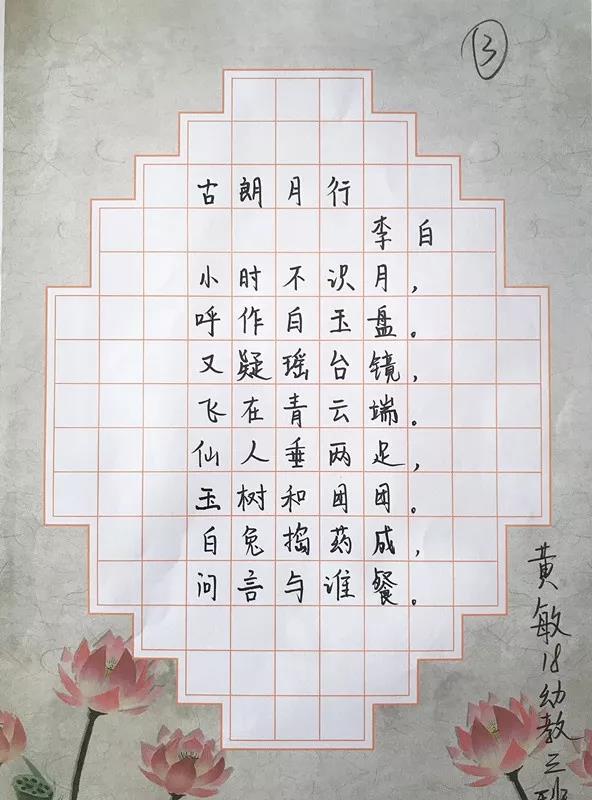 ③
古朗月行
李白
小时不识月，
呼作白玉盘。
又疑瑶台镜，
飞在青云端。
仙人垂两足，
玉树和团团。
白兔捣药成，
问言与谁餐。
黄敏18幼教三班